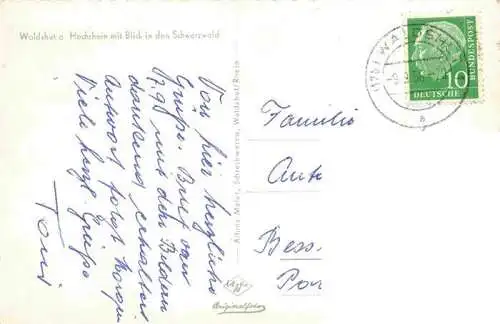 Waldshut a. Hochrhein mit Blick in den Schwarzwald
Von hier herzliche
Grüße. Brief vom
17.9. mit den Bildern
dankend erhalten
Antwort folgt morgen
Viele herzl. Grüße
Toni
Schreibwaren, Waldshut/Rhein
Agfa
Originalfoto
(17b) WALDSH
b
10
DEUTSCHE
BUNDESPOST
Familie
Ant
Bess.